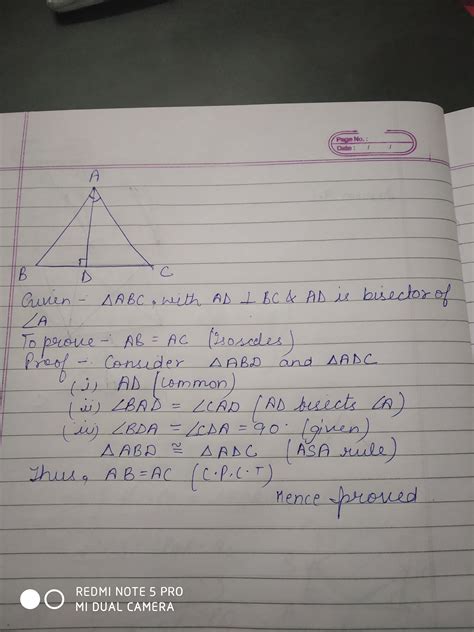 Page No. :
Date : / /
A
B D C
Given - ΔABC, with AD ⊥ BC & AD is bisector of
∠A
To prove - AB = AC (Isosceles)
Proof - Consider ΔABD and ΔADC
(i) AD (common)
(ii) ∠BAD = ∠CAD (AD bisects ∠A)
(iii) ∠BDA = ∠CDA = 90° (given)
ΔABD ≅ ΔADC (ASA rule)
Thus, AB = AC (C.P.C.T)
Hence proved
REDMI NOTE 5 PRO
MI DUAL CAMERA